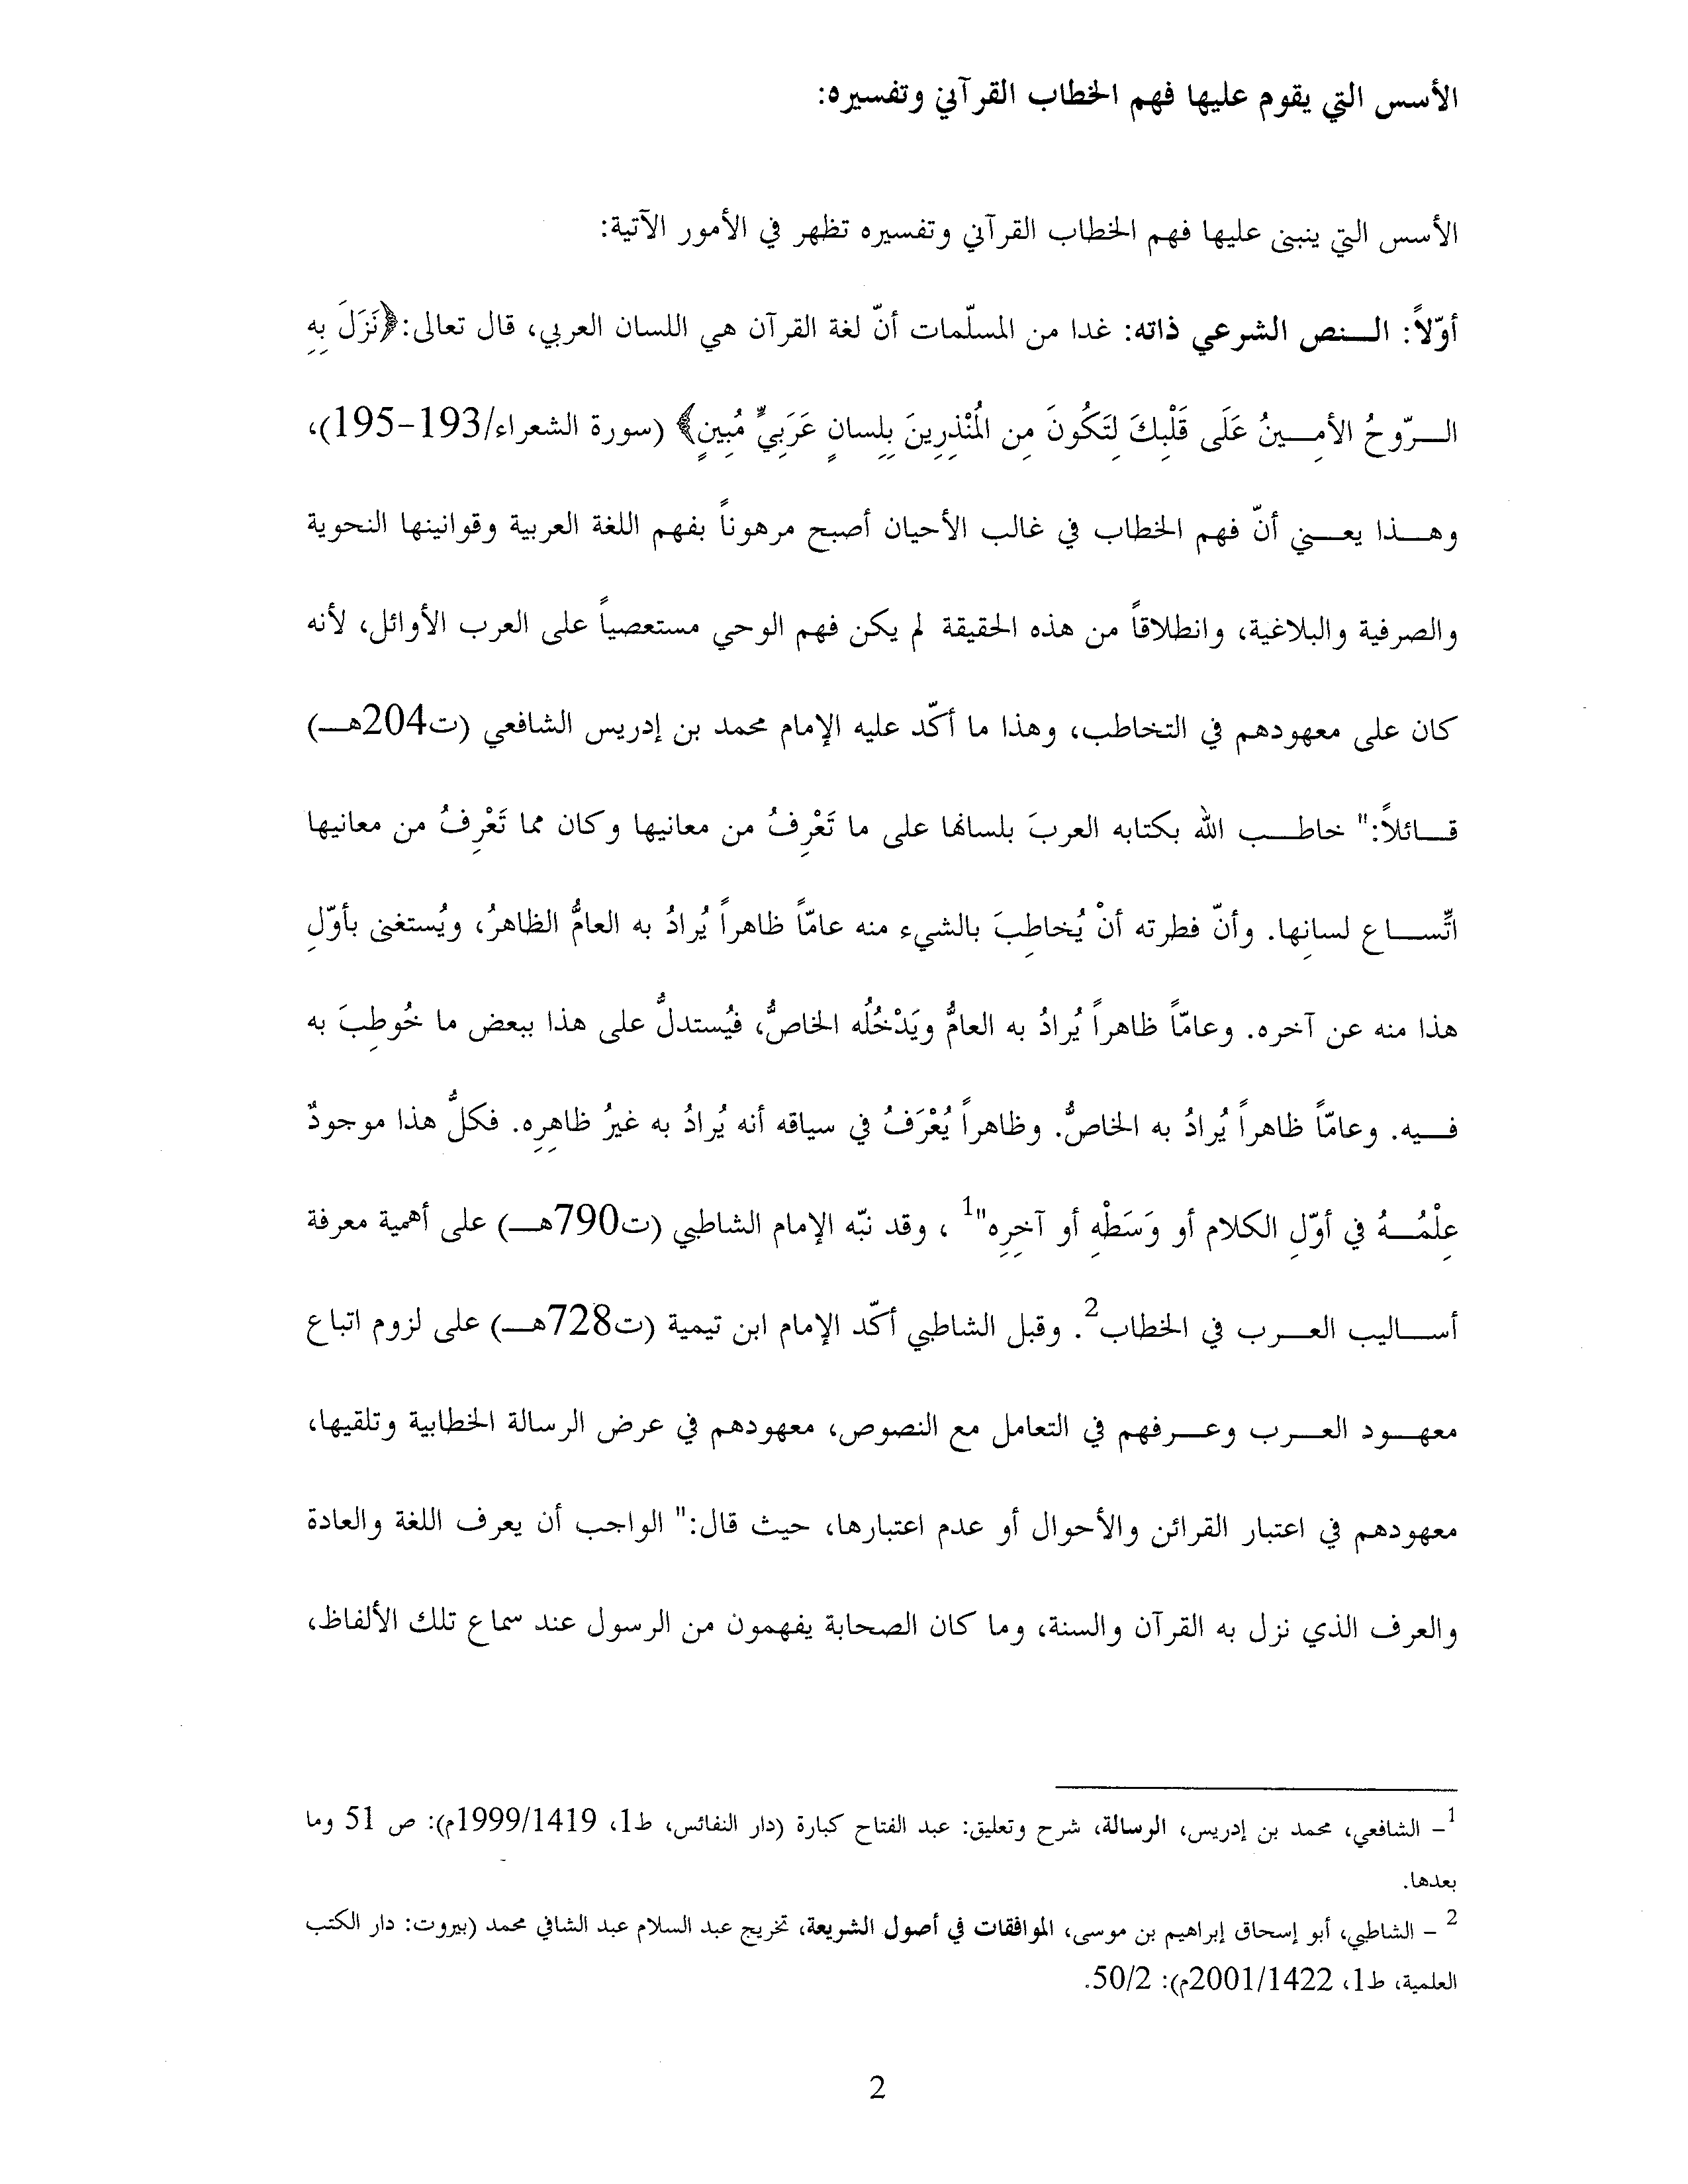 الأسس التي يقوم عليها فهم الخطاب القرآني وتفسيره:
الأسس التي ينبني عليها فهم الخطاب القرآني وتفسيره تظهر في الأمور الآتية:
أوّلاً: الـــنص الشرعي ذاته: غدا من المسلّمات أنّ لغة القرآن هي اللسان العربي، قال تعالى:﴿نَزَلَ بِهِ
الـــرّوحُ الأمِـــينُ عَلَى قَلْبِكَ لِتَكُونَ مِن الْمُنْذِرِينَ بِلِسانٍ عَرَبِيٍّ مُبِينٍ﴾ (سورة الشعراء/193-195)،
وهـــذا يعـــني أنّ فهم الخطاب في غالب الأحيان أصبح مرهوناً بفهم اللغة العربية وقوانينها النحوية
والصرفية والبلاغية، وانطلاقاً من هذه الحقيقة لم يكن فهم الوحي مستعصياً على العرب الأوائل، لأنه
كان على معهودهم في التخاطب، وهذا ما أكّد عليه الإمام محمد بن إدريس الشافعي (ت204هـــ)
قـــائلاً:" خاطـــب الله بكتابه العربَ بلسانها على ما تَعْرِفُ من معانيها وكان مما تَعْرِفُ من معانيها
اتِّســـاع لسانِها. وأنّ فطرته أنْ يُخاطِبَ بالشيء منه عامّاً ظاهراً يُرادُ به العامُّ الظاهرُ، ويُستغنى بأوّلِ
هذا منه عن آخره. وعامّاً ظاهراً يُرادُ به العامُّ ويَدْخُلُه الخاصُّ، فيُستدلُّ على هذا ببعض ما خُوطِبَ به
فـــيه. وعامّاً ظاهراً يُرادُ به الخاصُّ. وظاهراً يُعْرَفُ في سياقه أنه يُرادُ به غيرُ ظاهِرِه. فكلُّ هذا موجودٌ
عِلْمُـــهُ في أوّلِ الكلام أو وَسَطْهِ أو آخِرِه"1 ، وقد نبّه الإمام الشاطبي (ت790هـــ) على أهمية معرفة
أســـاليب العـــرب في الخطاب2. وقبل الشاطبي أكّد الإمام ابن تيمية (ت728هـــ) على لزوم اتباع
معهـــود العـــرب وعـــرفهم في التعامل مع النصوص، معهودهم في عرض الرسالة الخطابية وتلقيها،
معهودهم في اعتبار القرائن والأحوال أو عدم اعتبارها، حيث قال:" الواجب أن يعرف اللغة والعادة
والعرف الذي نزل به القرآن والسنة، وما كان الصحابة يفهمون من الرسول عند سماع تلك الألفاظ،
1- الشافعي، محمد بن إدريس، الرسالة، شرح وتعليق: عبد الفتاح كبارة (دار النفائس، ط1، 1999/1419م): ص 51 وما
بعدها.
2 - الشاطبي، أبو إسحاق إبراهيم بن موسى، الموافقات في أصول الشريعة، تخريج عبد السلام عبد الشافي محمد (بيروت: دار الكتب
العلمية، ط1، 2001/1422م): 50/2.
2